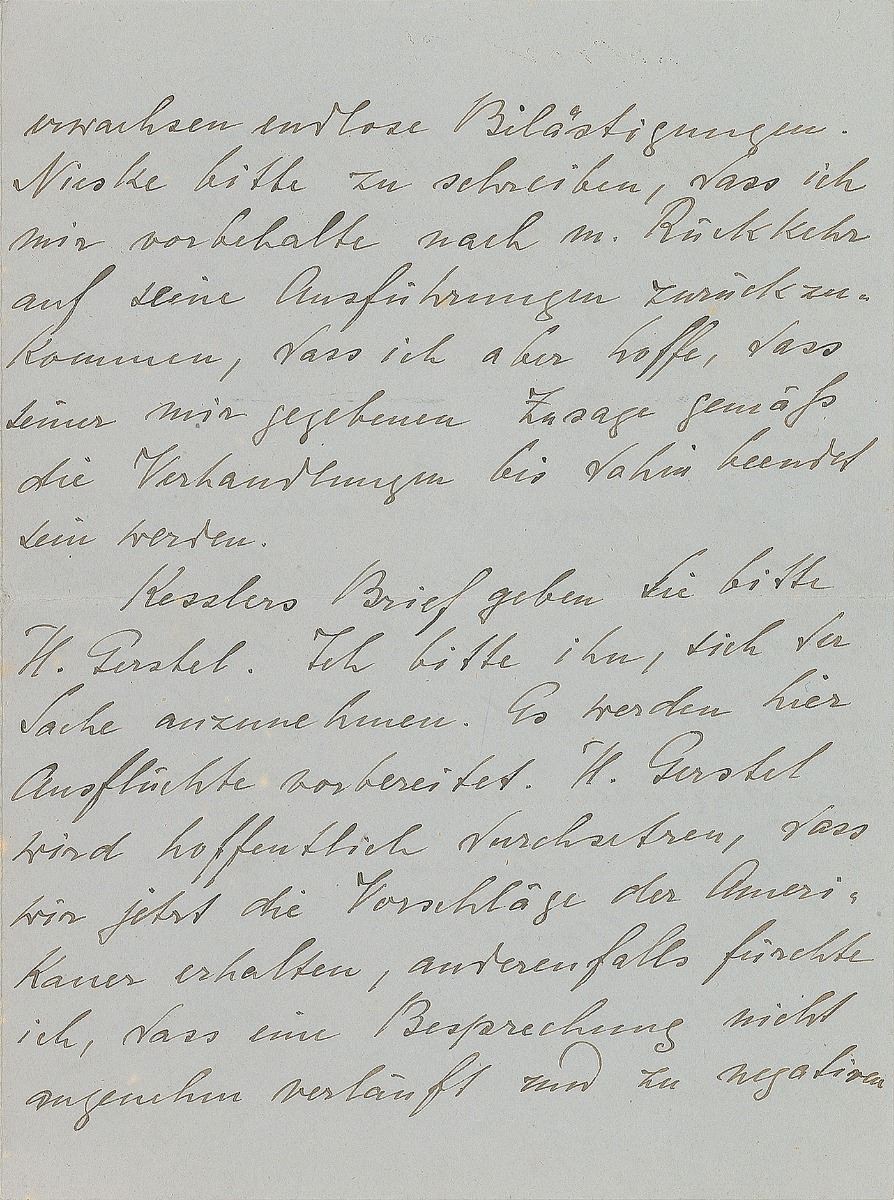 erwachsen endlose Belästigungen.
Nieske bitte zu schreiben, dass ich
mir vorbehalte nach m. Rückkehr
auf seine Ausführungen zurückzu-
kommen, dass ich aber hoffe, dass
seiner mir gegebenen Zusage gemäß
die Verhandlungen bis dahin beendet
sein werden.
Kesslers Brief geben Sie bitte
H. Gerstel. Ich bitte ihn, sich der
Sache anzunehmen. Es werden hier
Ausflüchte vorbereitet. H. Gerstel
wird hoffentlich durchsetzen, dass
wir jetzt die Vorschläge der Ameri-
kaner erhalten, anderenfalls fürchte
ich, dass eine Besprechung nicht
angenehm verläuft und zu negativen